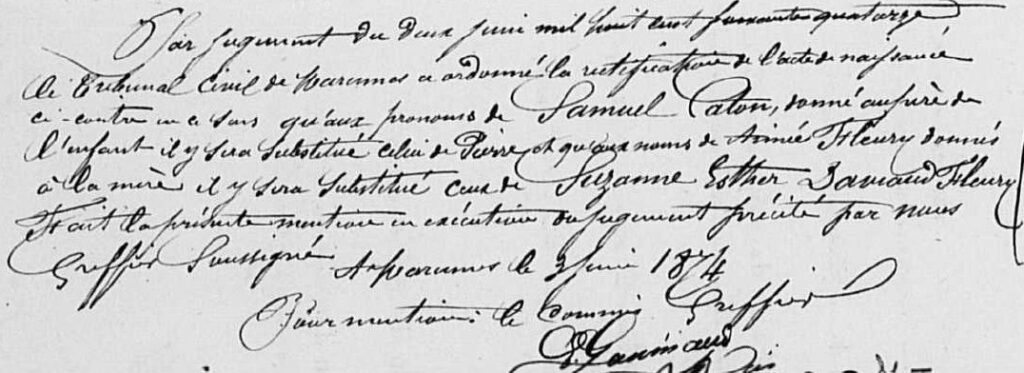 Par jugement du deux juin mil huit cent soixante quatorze
le Tribunal Civil de Marennes a ordonné la rectification de l'acte de naissance
ci-contre en ce sens qu'aux prénoms de Samuel Caton, donné au père de
l'enfant il y sera substitué celui de Pierre et qu'aux noms de Aimée Fleury donnés
à la mère il y sera substitué ceux de Suzanne Esther Fleury
Fait la présente mention en exécution du jugement précité par nous
Greffier soussigné
A Marennes le juin 1874
Pour mention: le commis Greffier